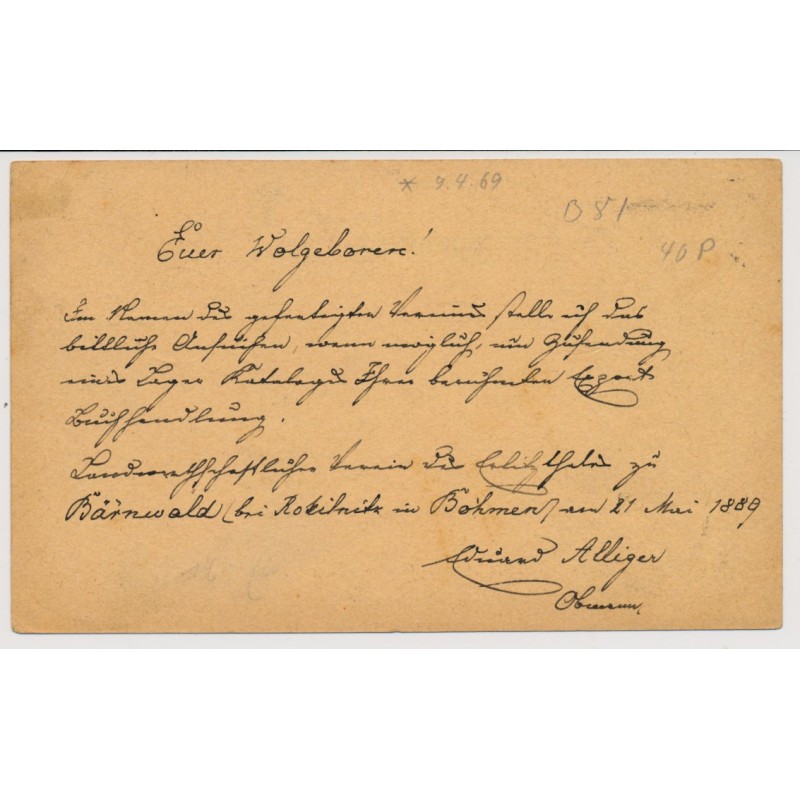 * 9.4.69
B 81
40 P
Euer Wolgeboren!
Im Namen des gefertigten Vereines stelle ich das
bittliche Ansuchen, wenn möglich, um Zusendung
eines Lager Kataloges Ihrer berühmten Export
Buchhandlung.
Landwirthschaftlicher Verein des Erlitzthales zu
Bärnwald (bei Rokitnitz in Böhmen) am 21 Mai 1889
Eduard Alliger
Obmann.